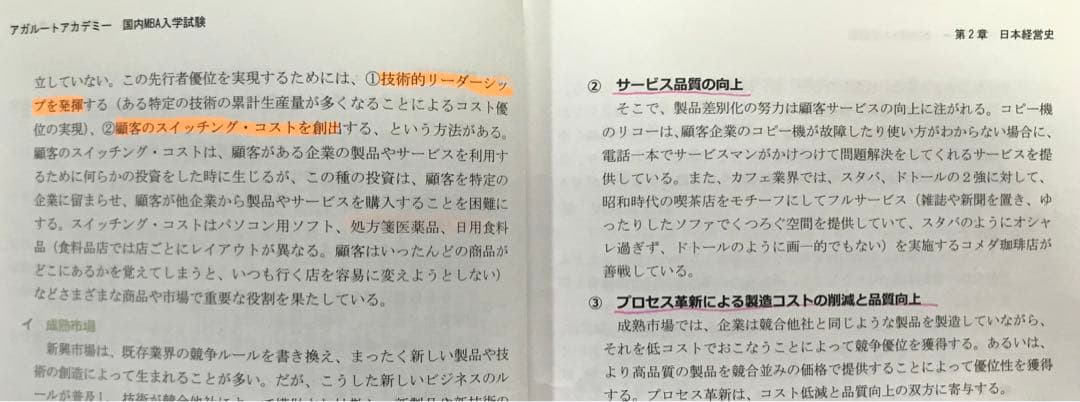 アガルートアカデミー 国内MBA入学試験
立していない。この先行者優位を実現するためには、①技術的リーダーシッ
プを発揮する（ある特定の技術の累計生産量が多くなることによるコスト優
位の実現）、②顧客のスイッチング・コストを創出する、という方法がある。
顧客のスイッチング・コストは、顧客がある企業の製品やサービスを利用す
るために何らかの投資をした時に生じるが、この種の投資は、顧客を特定の
企業に留まらせ、顧客が他企業から製品やサービスを購入することを困難に
する。スイッチング・コストはパソコン用ソフト、処方箋医薬品、日用食料
品（食料品店では店ごとにレイアウトが異なる。顧客はいったんどの商品が
どこにあるかを覚えてしまうと、いつも行く店を容易に変えようとしない）
などさまざまな商品や市場で重要な役割を果たしている。
イ 成熟市場
新興市場は、既存業界の競争ルールを書き換え、まったく新しい製品や技
術の創造によって生まれることが多い。だが、こうした新しいビジネスのル
ールが普及し、技術が競合他社によって
第２章 日本経営史
② サービス品質の向上
そこで、製品差別化の努力は顧客サービスの向上に注がれる。コピー機
のリコーは、顧客企業のコピー機が故障したり使い方がわからない場合に、
電話一本でサービスマンがかけつけて問題解決をしてくれるサービスを提
供している。また、カフェ業界では、スタバ、ドトールの２強に対して、
昭和時代の喫茶店をモチーフにしてフルサービス（雑誌や新聞を置き、ゆ
ったりしたソファでくつろぐ空間を提供していて、スタバのようにオシャ
レ過ぎず、ドトールのように画一的でもない）を実施するコメダ珈琲店が
善戦している。
③ プロセス革新による製造コストの削減と品質向上
成熟市場では、企業は競合他社と同じような製品を製造していながら、
それを低コストでおこなうことによって競争優位を獲得する。あるいは、
より高品質の製品を競合並みの価格で提供することによって優位性を獲得
する。プロセス革新は、コスト低減と品質向上の双方に寄与する。